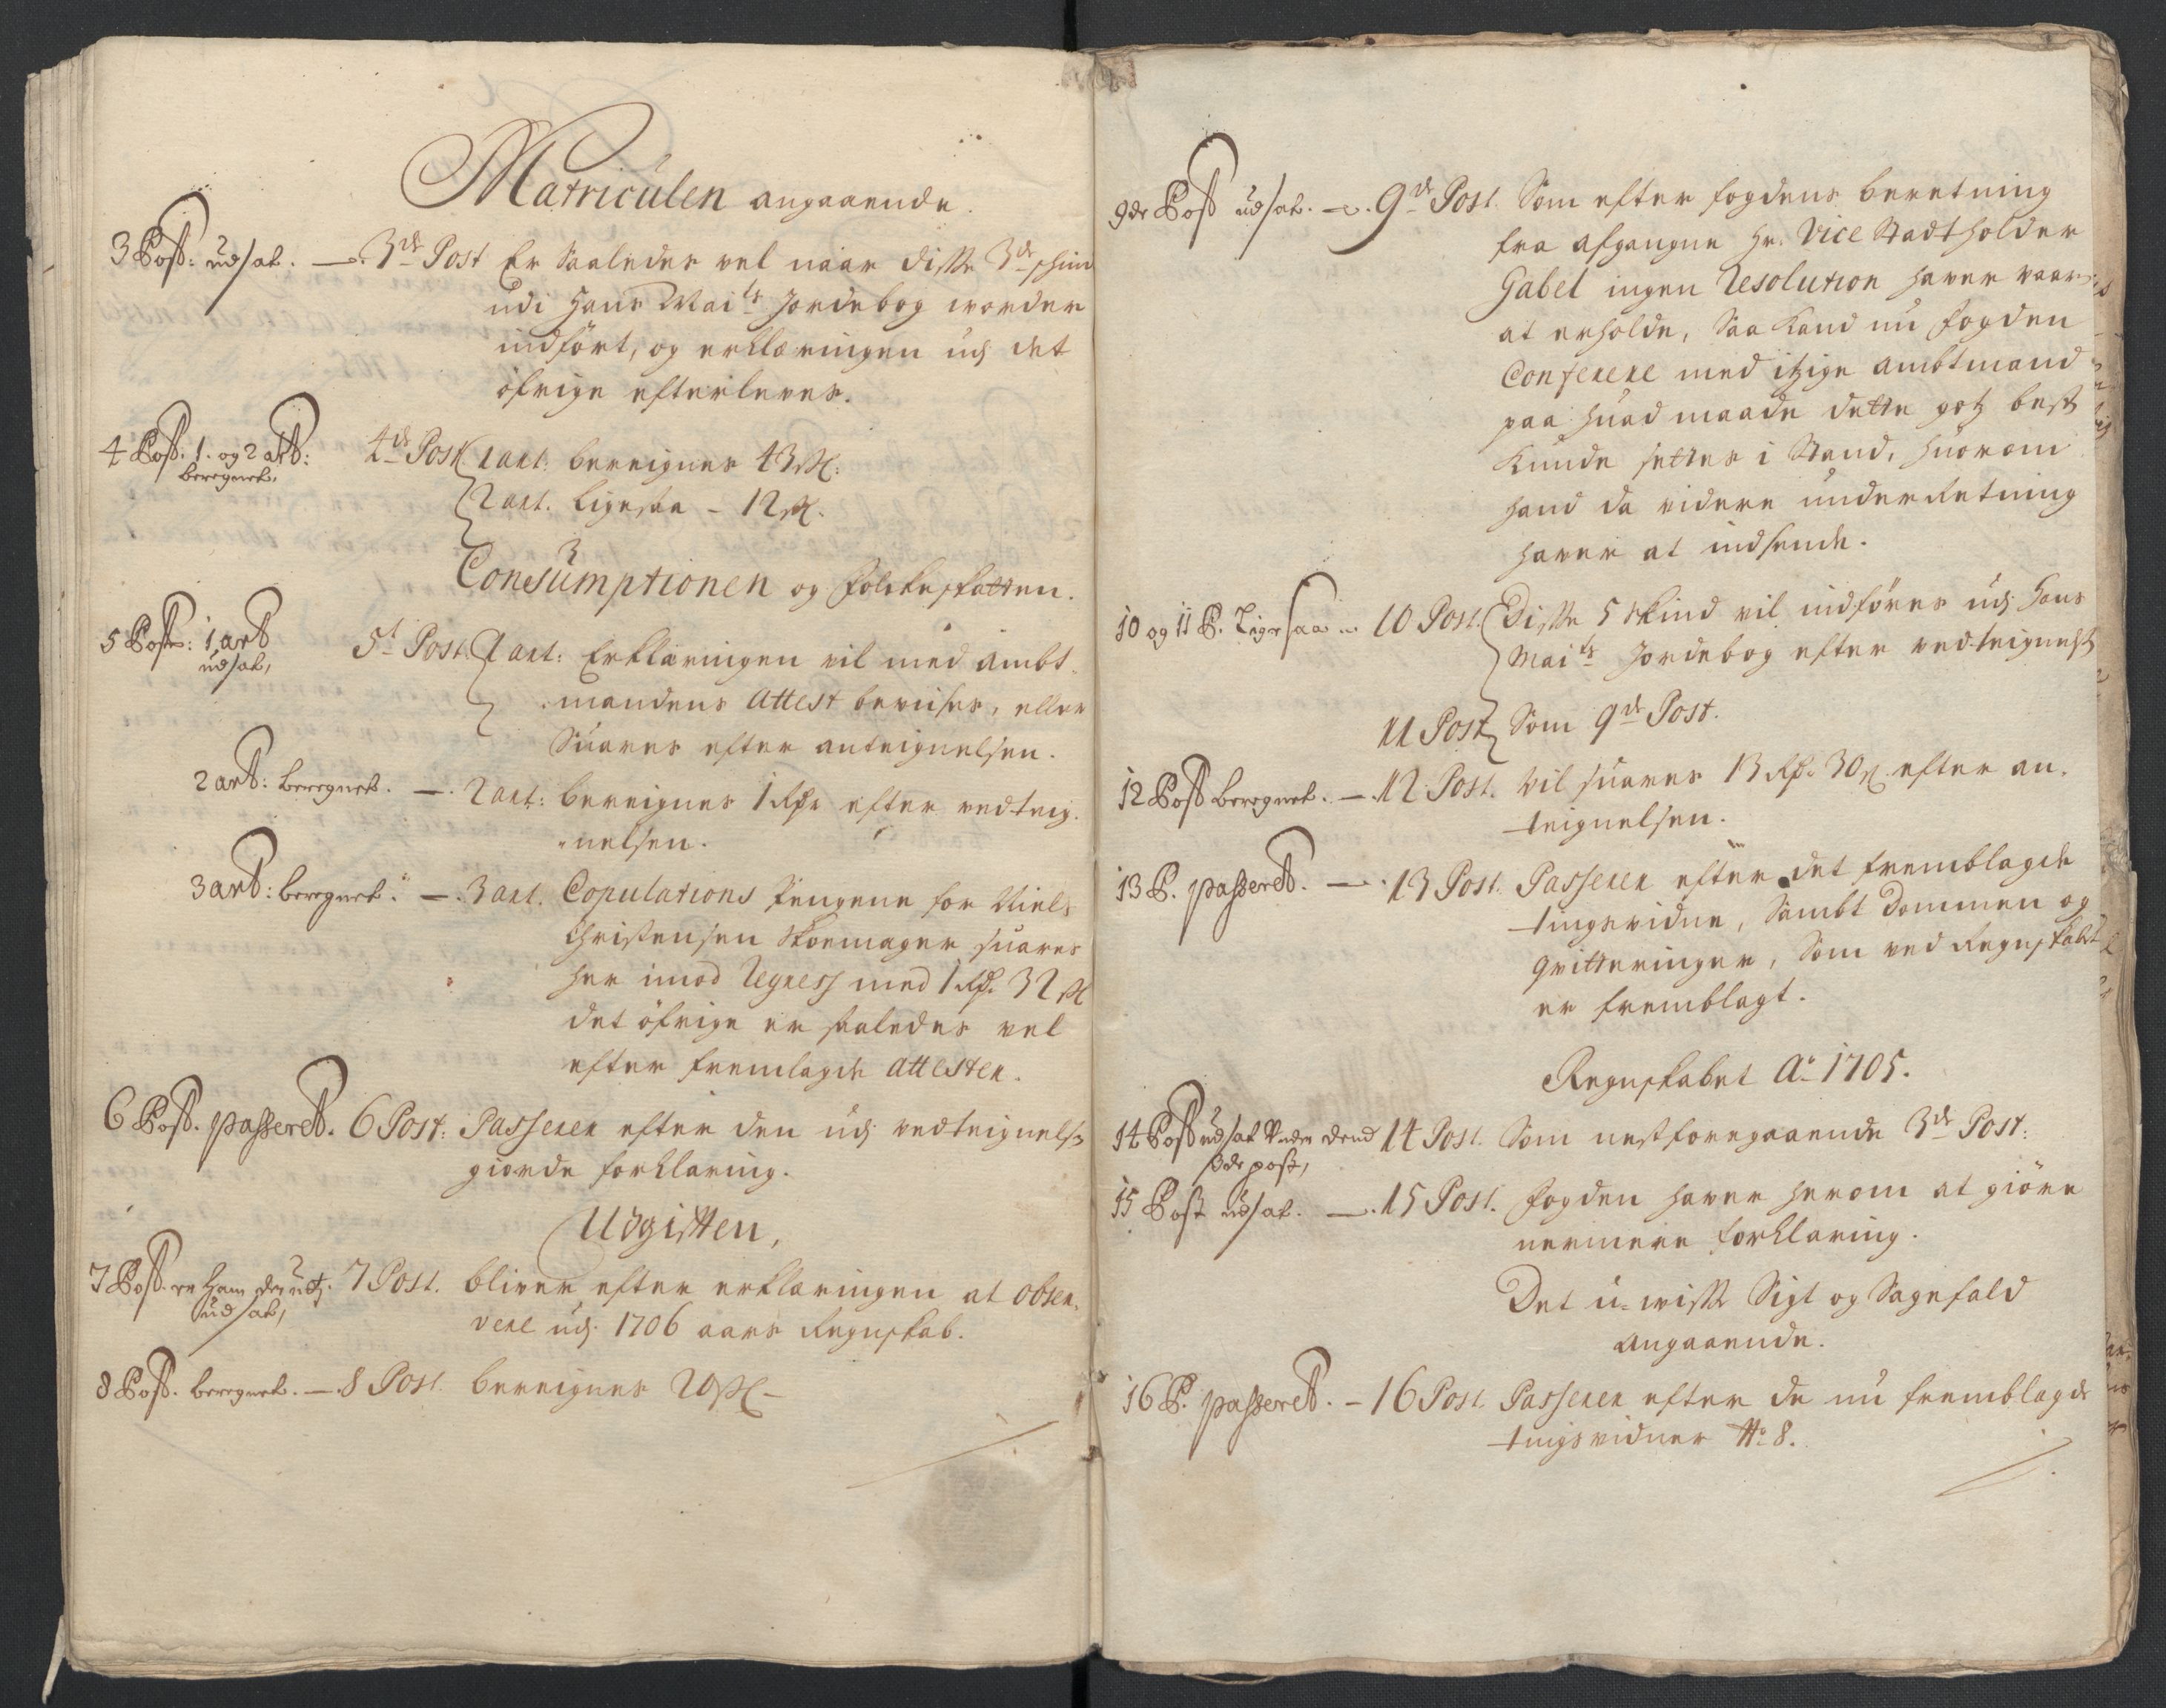 Matriculen angaaende.
3 Post: udsat. — 3de Post Er Saaledes vel naar disse 3de schind
udi Hans Maits Jordebog worder
indført, og erklæringen udj det
øfrige efterleves.
4 Post: 1. og 2 art: 4de Post 1 art: bereignes 43 s:
beregnet, 2 art. Ligesaa - 12 s.
Consumptionen og folkeskatten.
5 Post: 1 art 5t Post. 1 art: Erklæringen vil med ambt-
udsat, mandens Attest bevises, eller
Suares efter anteignelsen.
2 art: beregnet. — 2 art: bereignes 1 Rdr efter vedteig-
nelsen.
3 art: beregnet. — 3 art. Copulations pengene for Niels
Christensen Skoemager suares
her imod Regress med 1 Rdr. 32 s
det øfrige er saaledes vel
efter fremlagde attester.
6 Post. passeret. 6 Post: Passerer efter den udj vedteignelse
giorde forklaring.
Udgiften,
7 Post. er ham 7 Post. bliver efter erklæringen at obser-
udsat, vere udj 1706 aars Regnskab.
8 Post. beregnet. — 8 Post. bereignes 20 s —
9de Post udsat. — 9de Post. Som efter fogdens beretning
fra afgangne Hr. Vice Stadtholder
Gabel ingen Resolution haver vaaren
at erholde, Saa kand nu fogden
Conferere med itzige ambtmand
paa huad maade dette gotz best
kunde settes i Stand, huorom
hand da videre underretning
haver at indsende.
10 og 11 P. Ligesaa 10 Post. Disse 5 skind vil indføres udj Hans
Maits Jordebog efter vedteignelse
11 Post Som 9de Post.
12 Post beregnet. — 12 Post. Vil suares 13 Rdr. 30 s. efter an-
teignelsen.
13 P. passeret. — 13 Post. Passerer efter det fremblagde
tingsvidne, Sambt Dommen og
qvitteringer, Som ved Regnskabet
er fremblagt.
Regnskabet Ao 1705.
14 Post udsat Under dend 14 Post. Som nestforegaaende 3de Post:
3de post,
15 Post udsat. — 15 Post. fogden haver herom at giøre
nermere forklaring.
Det u-wisse Sigt og Sagefald
angaaende.
16 P. passeret. — 16 Post. Passerer efter de nu fremblagde
tingsvidner No 8.